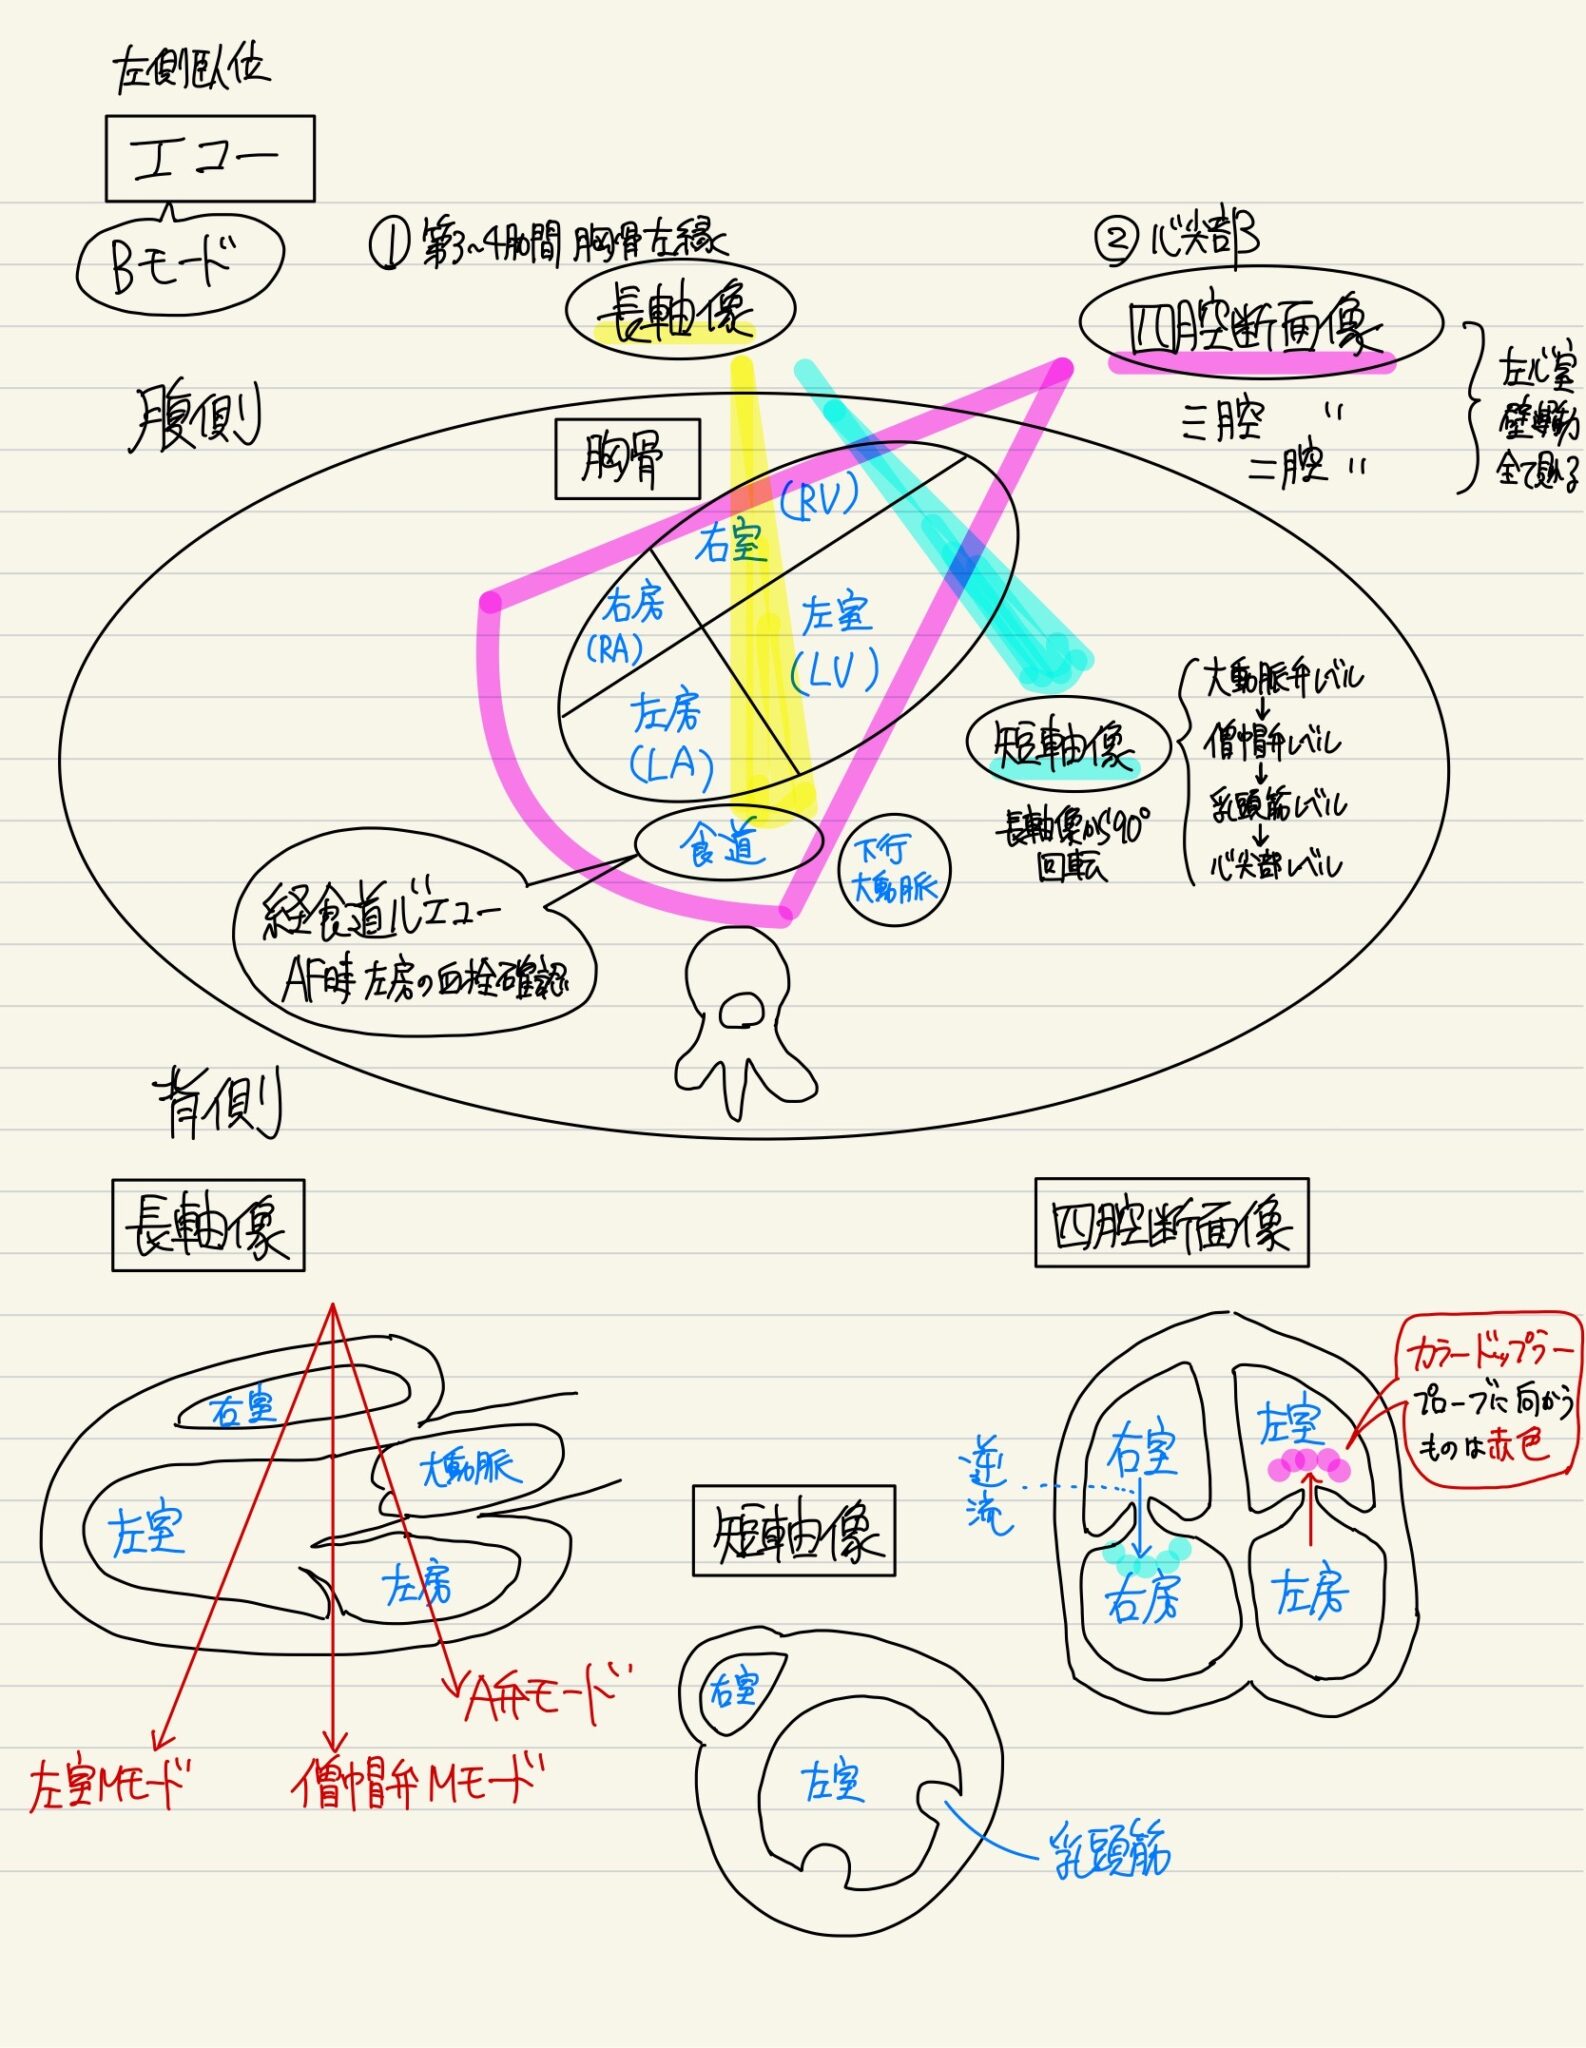 左側臥位
エコー
Bモード
① 第3~4肋間 胸骨左縁
長軸像
② 心尖部
四腔断面像
三腔 〃
二腔 〃
左心室
壁運動
全て見れる
腹側
胸骨
右室
(RV)
右房
(RA)
左室
(LV)
左房
(LA)
食道
下行
大動脈
短軸像
長軸像から90°
回転
大動脈弁レベル
↓
僧帽弁レベル
↓
乳頭筋レベル
↓
心尖部レベル
経食道心エコー
AF時 左房の血栓確認
背側
長軸像
右室
大動脈
左室
左房
左室Mモード
僧帽弁Mモード
A弁モード
短軸像
右室
左室
乳頭筋
四腔断面像
右室
左室
右房
左房
逆流
カラードップラー
プローブに向かう
ものは赤色